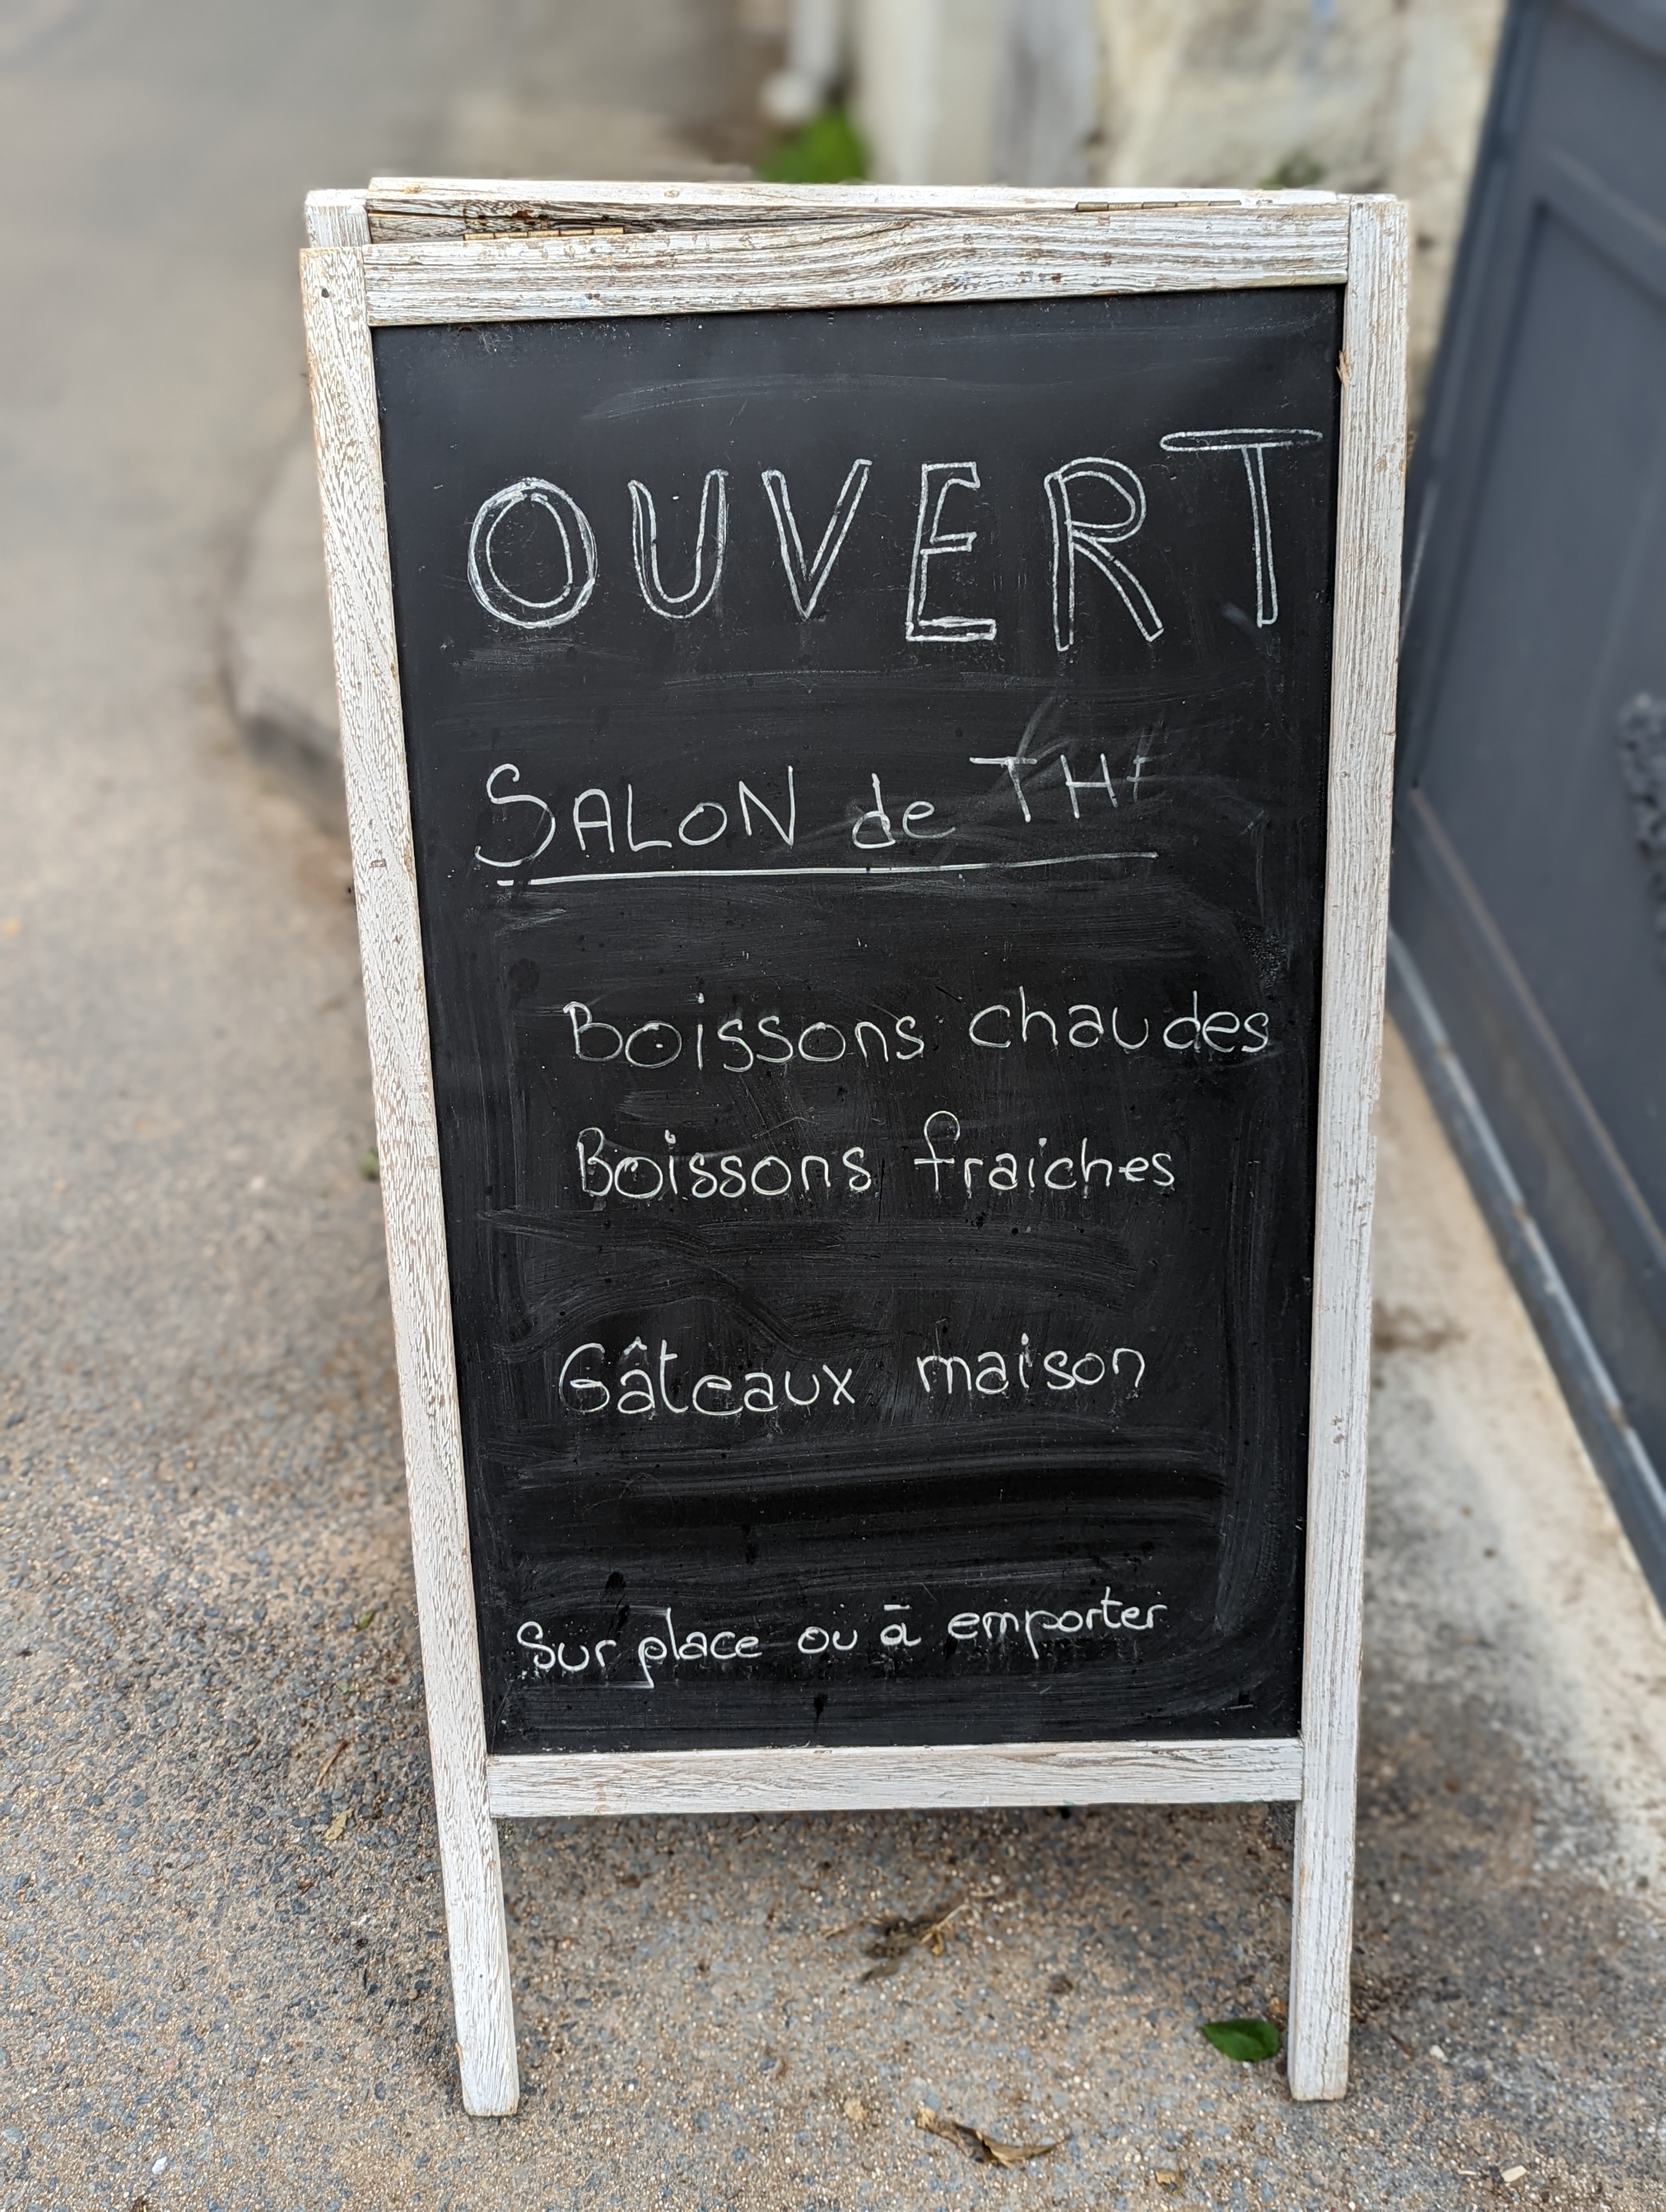 OUVERT
SALON de THE
Boissons chaudes
Boissons fraiches
Gâteaux maison
Sur place ou à emporter